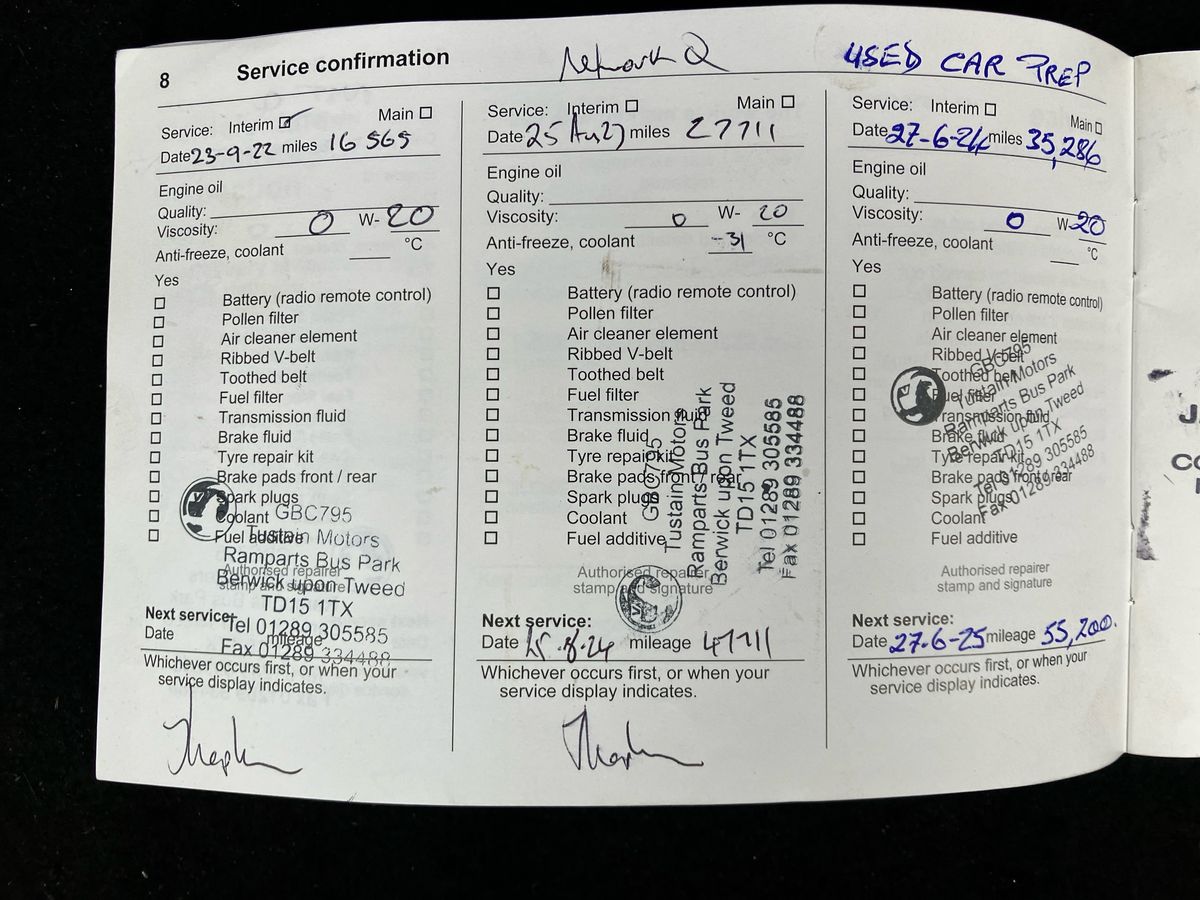 8 Service confirmation
Network Q
USED CAR PREP
Service: Interim Main
Date 23-9-22 miles 16565
Engine oil
Quality:
Viscosity: 0 W- 20
Anti-freeze, coolant °C
Yes
Battery (radio remote control)
Pollen filter
Air cleaner element
Ribbed V-belt
Toothed belt
Fuel filter
Transmission fluid
Brake fluid
Tyre repair kit
Brake pads front / rear
Spark plugs
Coolant
Fuel additive
GBC795
Tustain Motors
Ramparts Bus Park
Berwick upon Tweed
TD15 1TX
Tel 01289 305585
Fax 01289 334488
Authorised repairer
stamp and signature
Next service:
Date mileage
Whichever occurs first, or when your
service display indicates.
Service: Interim Main
Date 25 Au23 miles 27711
Engine oil
Quality:
Viscosity: 0 W- 20
Anti-freeze, coolant -31 °C
Yes
Battery (radio remote control)
Pollen filter
Air cleaner element
Ribbed V-belt
Toothed belt
Fuel filter
Transmission fluid
Brake fluid
Tyre repair kit
Brake pads front / rear
Spark plugs
Coolant
Fuel additive
GBC795
Tustain Motors
Ramparts Bus Park
Berwick upon Tweed
TD15 1TX
Tel 01289 305585
Fax 01289 334488
Authorised repairer
stamp and signature
Next service:
Date 25.8.24 mileage 47711
Whichever occurs first, or when your
service display indicates.
Service: Interim Main
Date 27-6-24 miles 35,286
Engine oil
Quality:
Viscosity: 0 W- 20
Anti-freeze, coolant °C
Yes
Battery (radio remote control)
Pollen filter
Air cleaner element
Ribbed V-belt
Toothed belt
Fuel filter
Transmission fluid
Brake fluid
Tyre repair kit
Brake pads front / rear
Spark plugs
Coolant
Fuel additive
GBC795
Tustain Motors
Ramparts Bus Park
Berwick upon Tweed
TD15 1TX
Tel 01289 305585
Fax 01289 334488
Authorised repairer
stamp and signature
Next service:
Date 27-6-25 mileage 55,200.
Whichever occurs first, or when your
service display indicates.